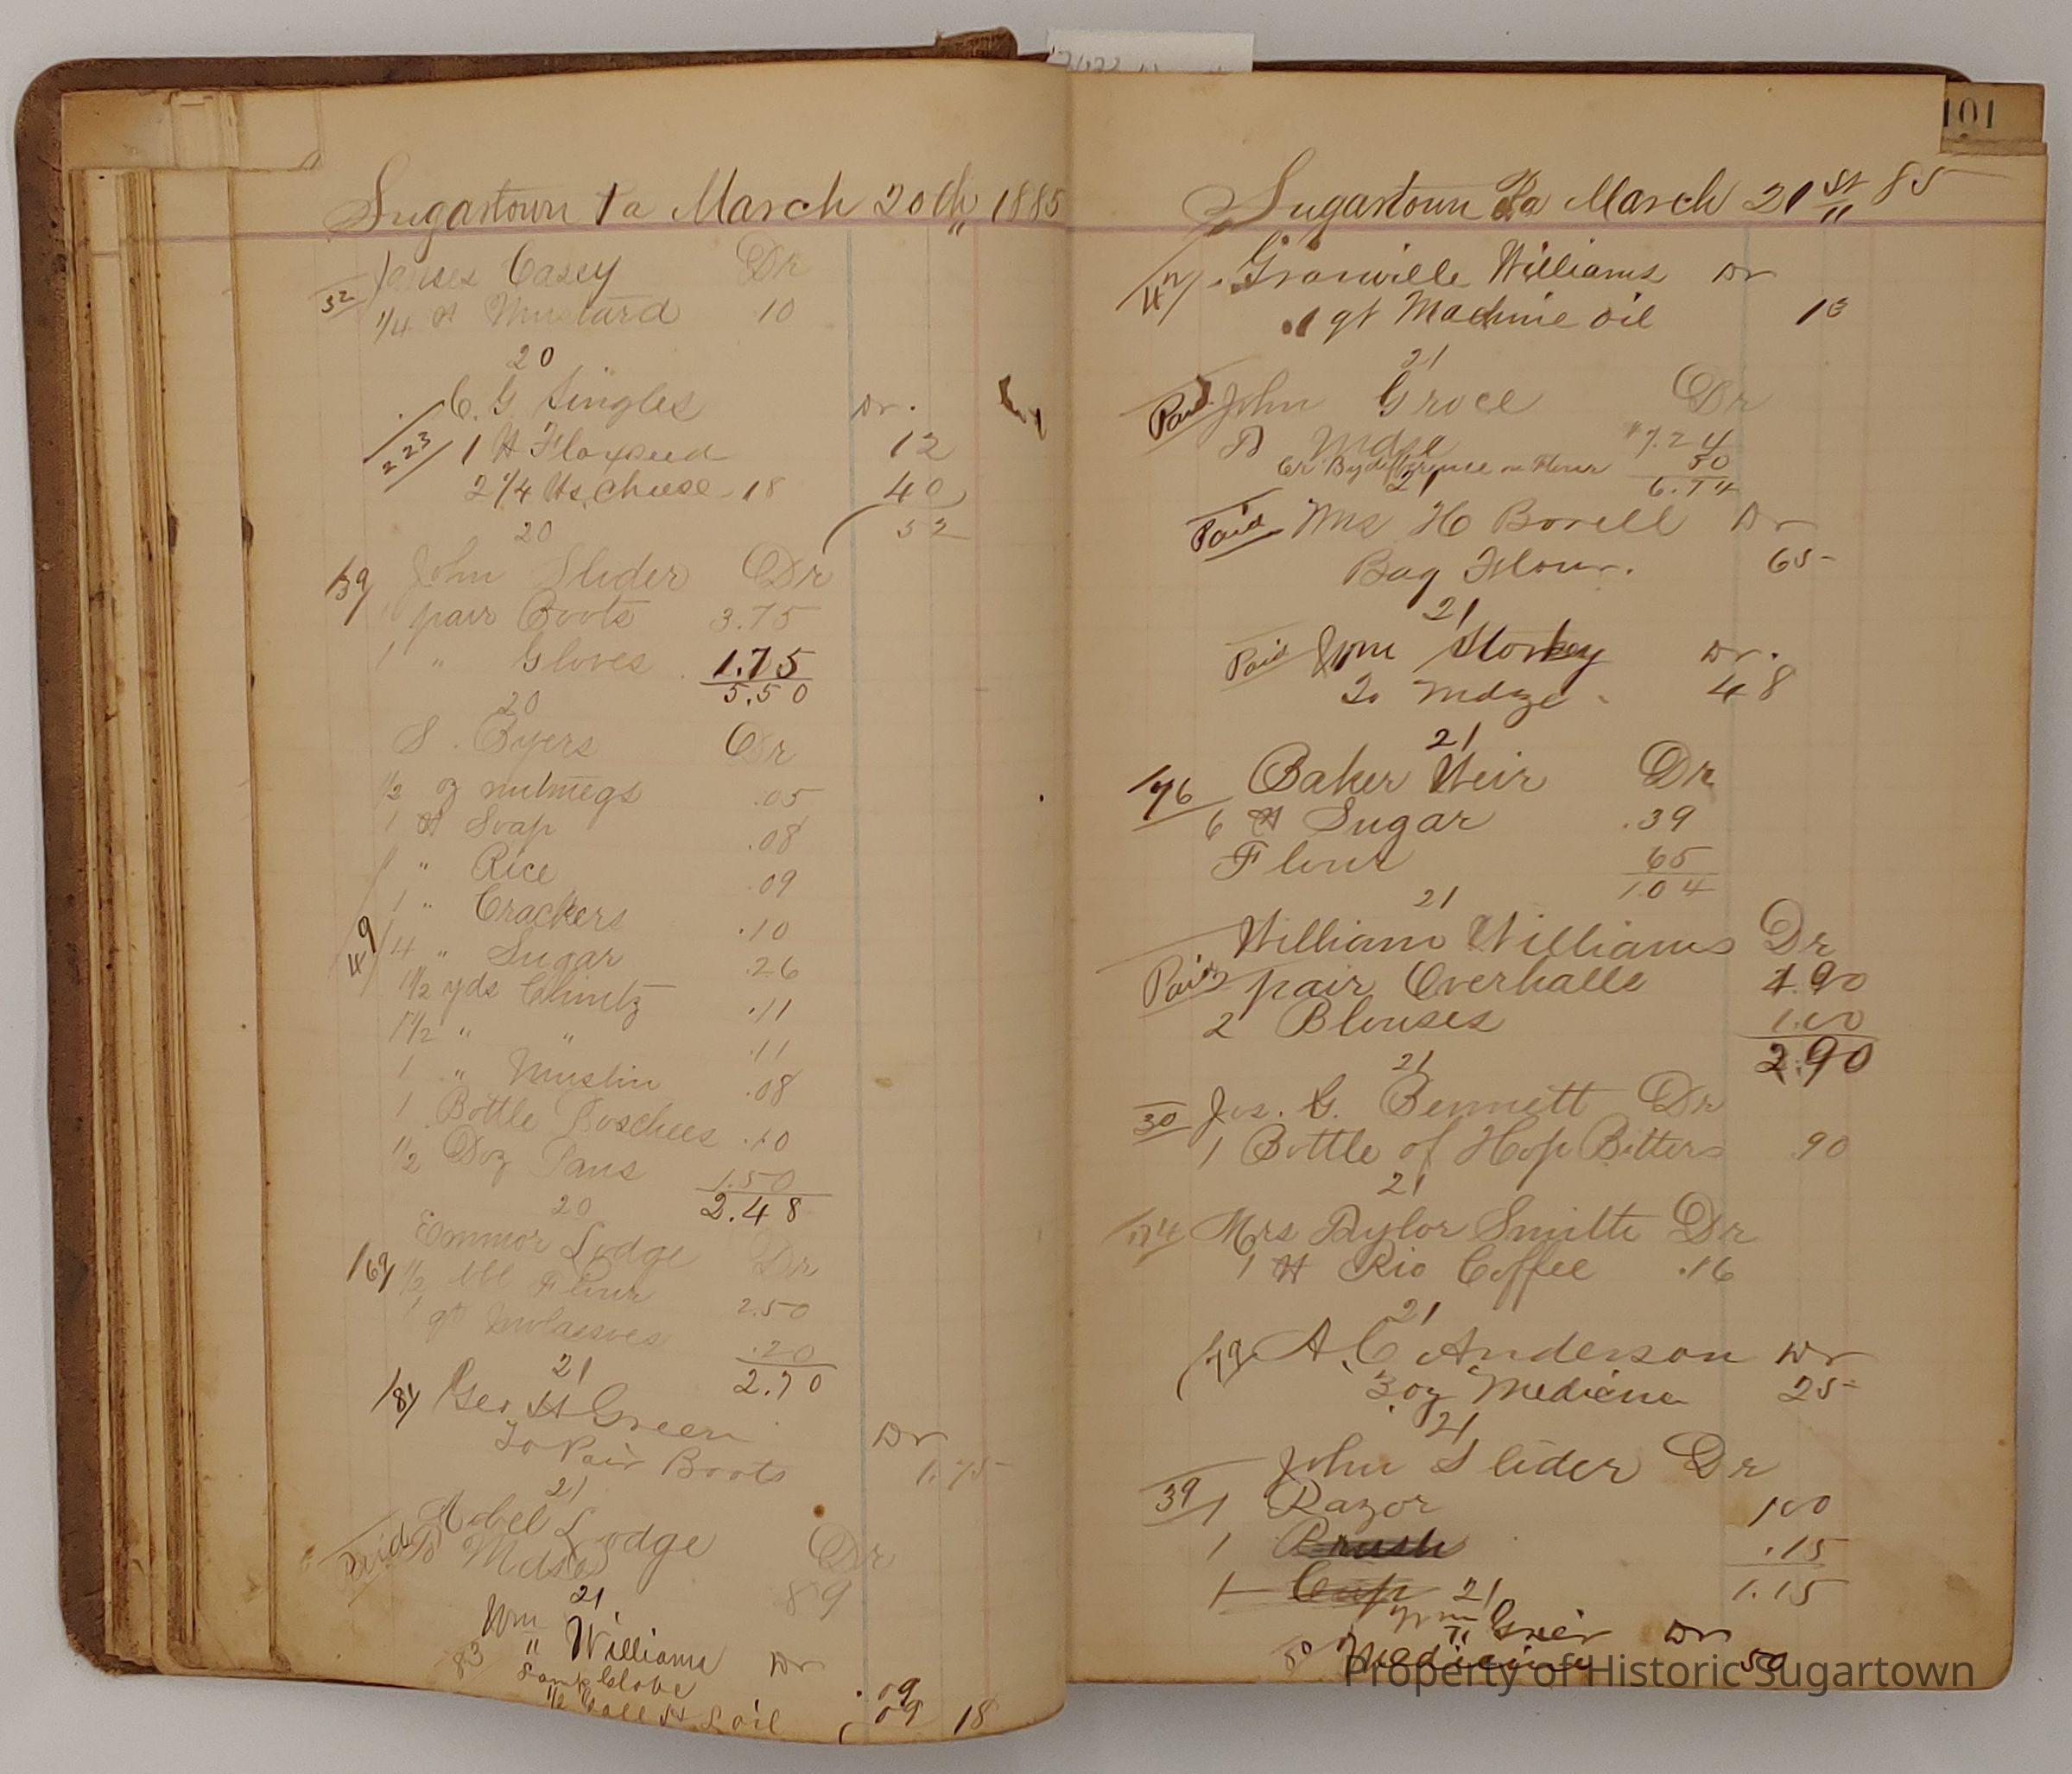 Sugartown Pa March 20th 1885
32 James Casey Dr
1/4 ℔ Mustard 10
20
C. G. Singles Dr.
223 1 ℔ Flaxseed 12
2 1/4 ℔s. Cheese 18 40
52
20
139 John Slider Dr
1 pair Boots 3.75
1 " Gloves 1.75
5.50
20
S. Byers Dr
1/2 oz nutmegs .05
1 ℔ Soap .08
1 " Rice .09
1 " Crackers .10
49 4 " Sugar .26
1 1/2 yds Chintz .11
1 1/2 " " .11
1 " Muslin .08
1 Bottle Boschees .10
1/2 Doz Pans 1.50
2.48
20
Emmor Lodge Dr
169 1/2 bbl Flour 2.50
1 qt Molasses .20
2.70
21
181 Geo H Green Dr
To Pair Boots 1.75
21
Abel Lodge Dr
Paid To Mdse 89
21
Wm " Williams Dr
83 Lamp Globe .09
1/2 Gall oil 09 18
101
Sugartown Pa March 21st 85
42 Granville Williams Dr
1 qt Machine oil 13
21
Paid John Groce Dr
To Mdse "7.24
Cr By difference on Flour 50
6.74
21
Paid Mrs H Borell Dr
Bag Flour. 65
21
Paid Storkey Dr.
To Mdze 48
21
176 Baker Weir Dr
6 ℔ Sugar .39
Flour 65
1.04
21
William Williams Dr
Paid pair Overhalls 1.90
2 Blouses 1.00
2.90
21
30 Jos. G. Bennett Dr
1 Bottle of Hop Bitters .90
21
174 Mrs Taylor Smith Dr
1 ℔ Rio Coffee .16
21
A. C Anderson Dr
3 oz Medicine 25
21
John Slider Dr
39 1 Razor 100
1 Brush .15
1 Cup 1.15
21
Wm Grier Dr
80 Medicine 50
Property of Historic Sugartown